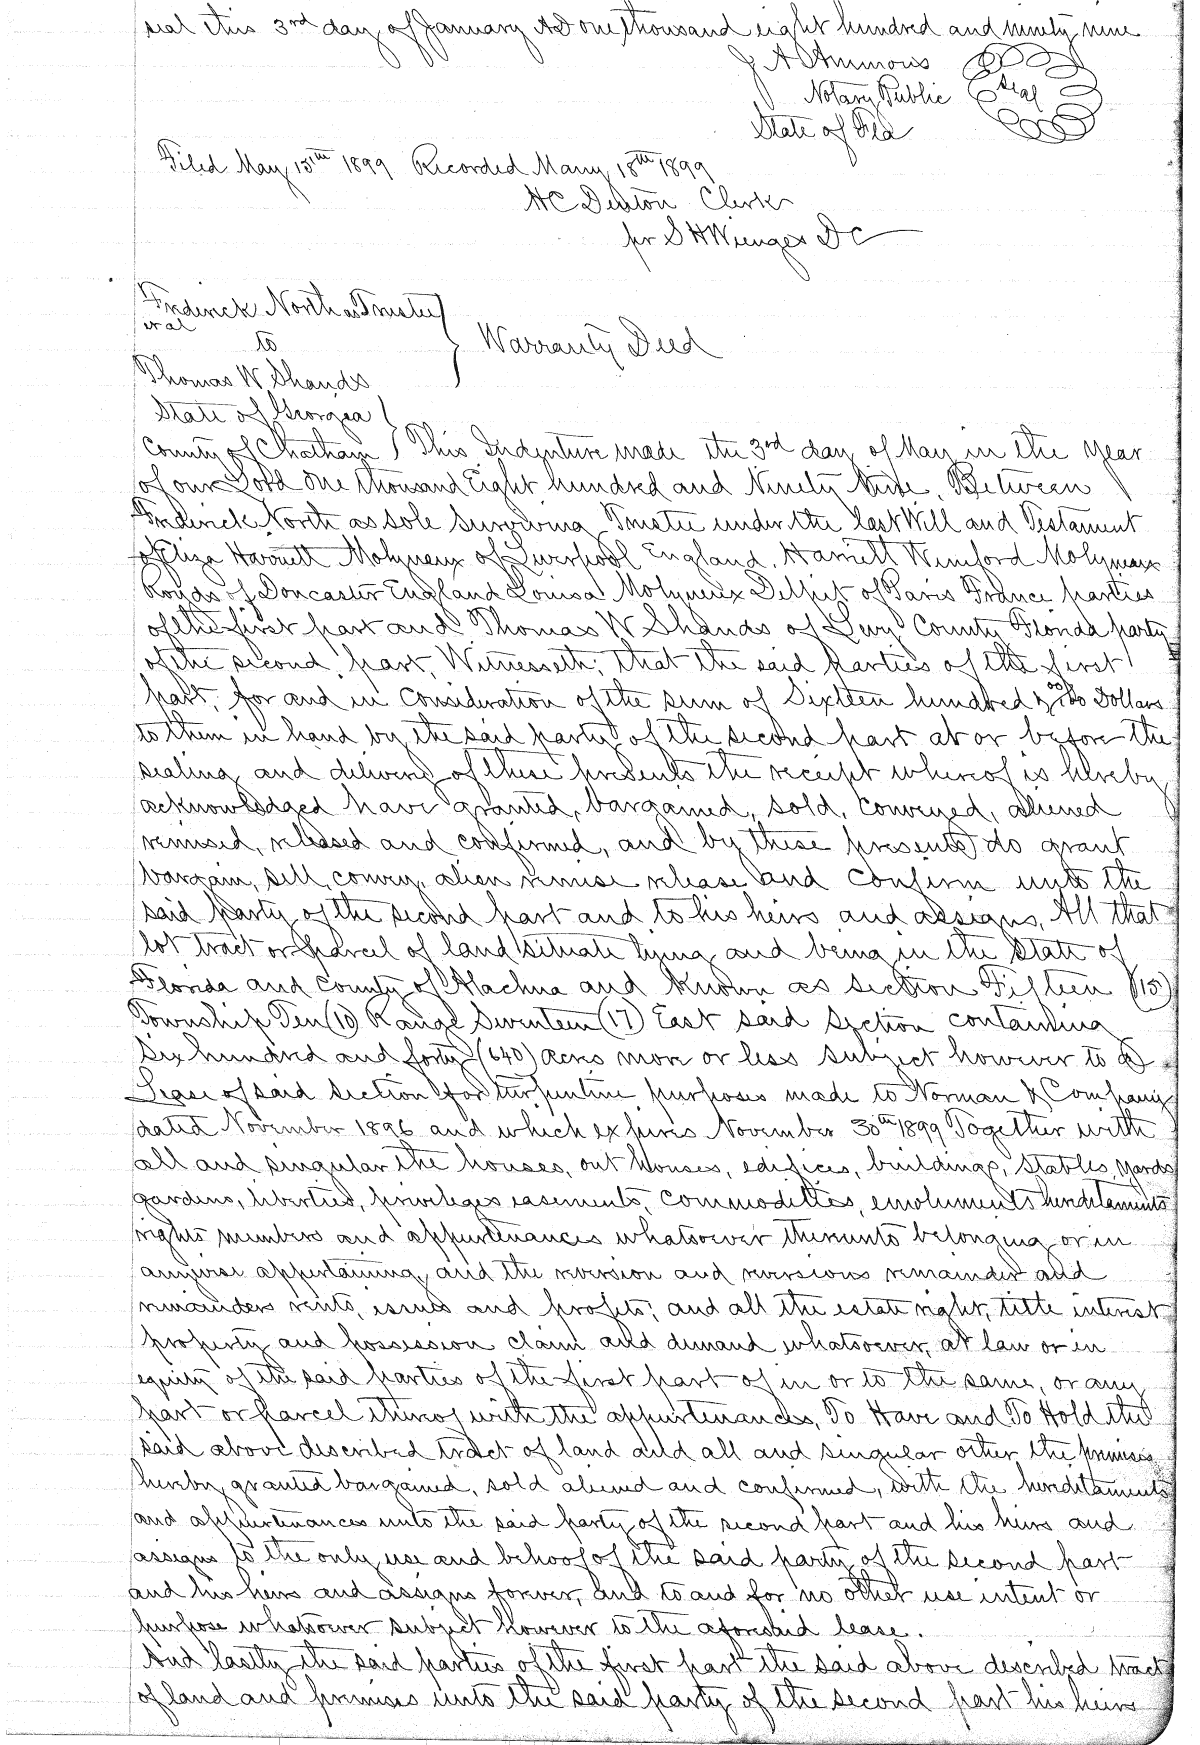 seal this 3rd day of January AD one thousand eight hundred and ninety nine
J A Ammons
Notary Public
Seal
State of Fla
Filed May 15th 1899 Recorded May 18th 1899
H C Denton Clerk
pr S H Wienges D C
Frederick North as Trustee
et al
to
Warranty Deed
Thomas W Shands
State of Georgea
County of Chatham } This Indenture made the 3rd day of May in the Year
of our Lord One thousand Eight hundred and Ninety Nine, Between
Frederick North as sole surviving Trustee under the last Will and Testament
of Eliza Harriett Molyneux of Liverpool England, Harriett Winiford Molyneux
Royds of Doncaster England Louisa Molyneux Delpit of Paris France parties
of the first part and Thomas W Shands of Levy County Florida party
of the second part, Witnesseth; that the said parties of the first
part, for and in consideration of the sum of Sixteen hundred & no/100 Dollars
to them in hand by the said party of the second part at or before the
sealing and delivery of these presents the receipt whereof is hereby
acknowledged have granted, bargained, sold, conveyed, aliened
remised, released and confirmed, and by these presents do grant
bargain, sell, convey, alien remise release and confirm unto the
said party of the second part and to his heirs and assigns, All that
lot tract or parcel of land situate lying and being in the State of
Florida and County of Alachua and known as section Fifteen (15)
Township Ten (10) Range Seventeen (17) East said section containing
six hundred and forty (640) acres more or less subject however to a
Lease of said section for turpentine purposes made to Norman & Company
dated November 1896 and which expires November 30th 1899 Together with
all and singular the houses, out houses, edifices, buildings, stables, yards
gardens, liberties, privileges easements, commodities, emoluments hereditaments
rights members and appurtenances whatsoever thereunto belonging or in
anywise appertaining and the reversion and reversions remainder and
remainders rents, issues and profits; and all the estate right, title interest
property and possession claim and demand whatsoever, at law or in
equity of the said parties of the first part of in or to the same, or any
part or parcel thereof with the appurtenances, To Have and To Hold the
said above described tract of land and all and singular other the premises
hereby granted bargained, sold aliened and confirmed, with the hereditaments
and appurtenances unto the said party of the second part and his heirs and
assigns to the only use and behoof of the said party of the second part
and his heirs and assigns forever, and to and for no other use intent or
purpose whatsoever subject however to the aforesaid lease.
And lastly the said parties of the first part the said above described tract
of land and premises unto the said party of the second part his heirs